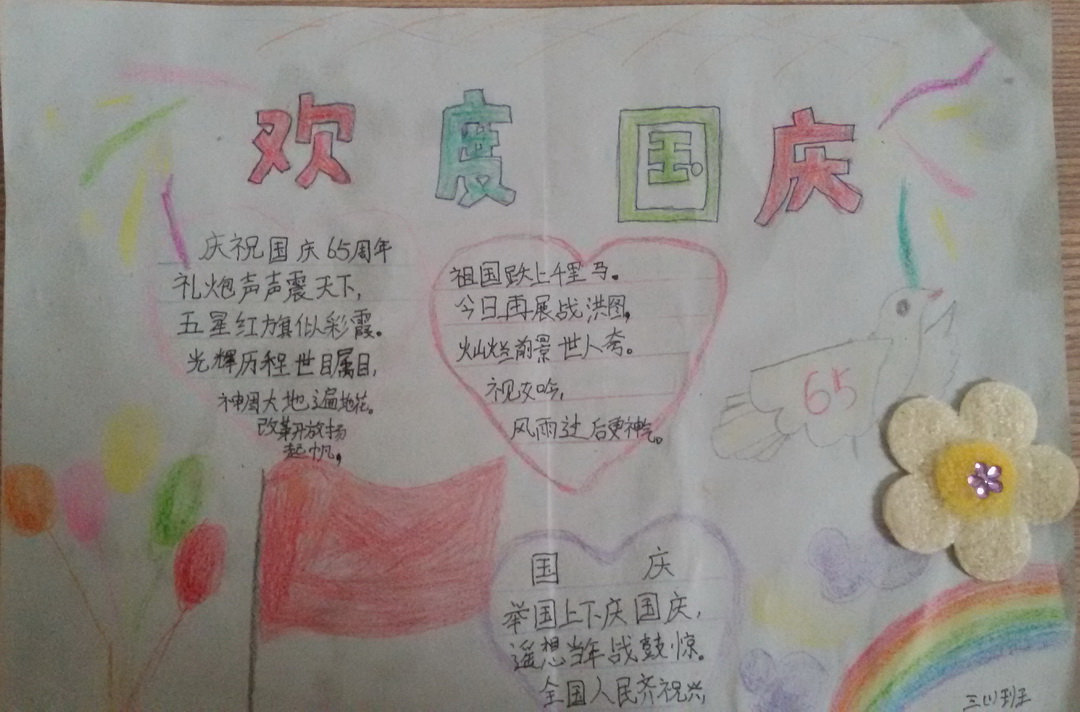 欢度国庆
庆祝国庆65周年
礼炮声声震天下,
五星红旗似彩霞。
光辉历程世目属目,
神周大地遍地花。
改革开放扬
起帆,
祖国跃上千里马。
今日再展战洪图,
灿烂前景世人夸。
风雨过后更神气。
65
国 庆
举国上下庆国庆,
遥想当年战鼓惊。
全国人民齐祝兴,
三(1)班